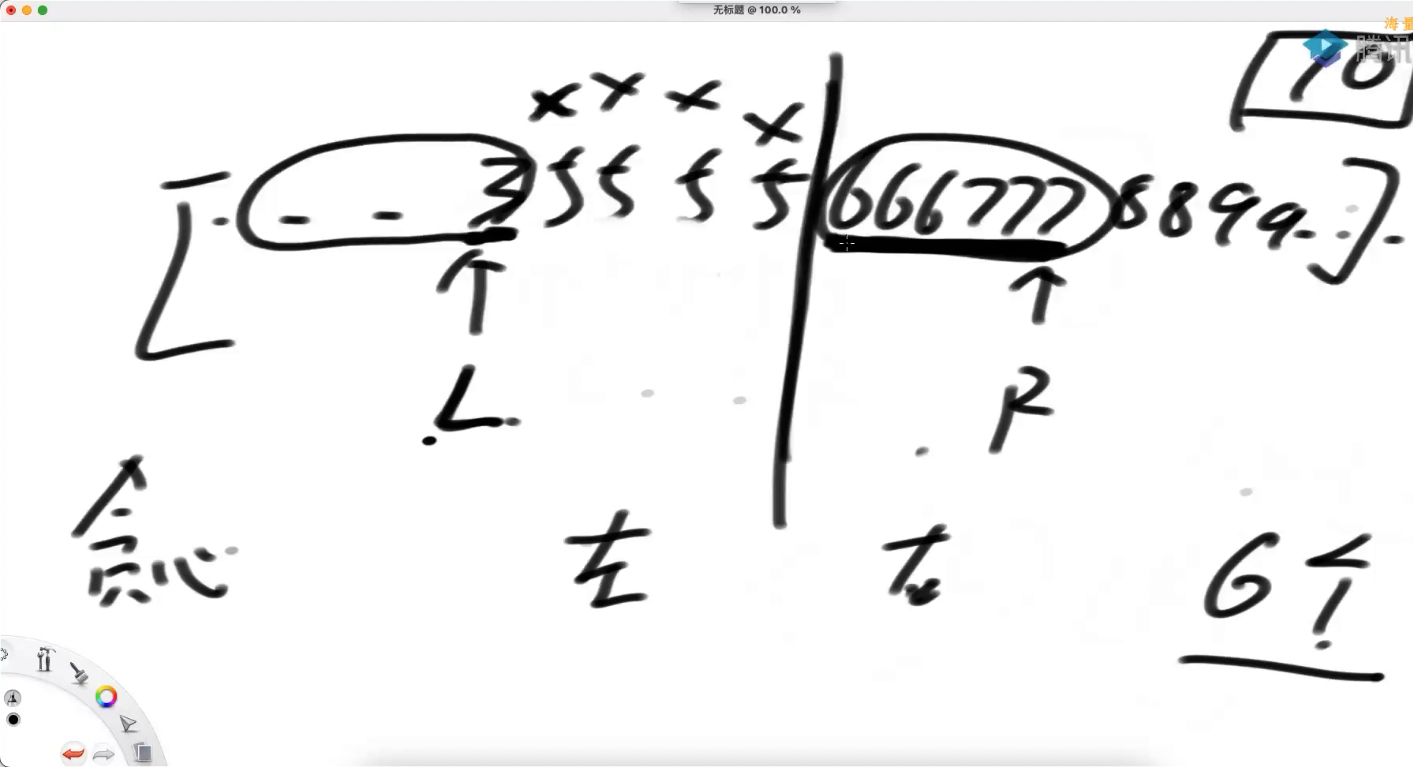 无标题 @ 100.0 %
海量
腾讯
10
x x x x
[ . - - 3 5 5 5 5 666777 8899. . ] .
L R
贪心 左 右 6